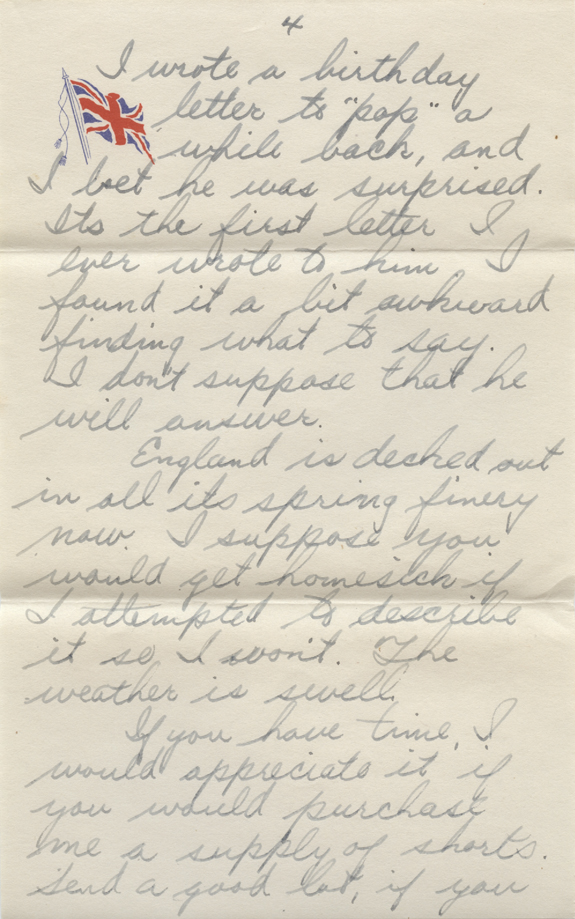 4
I wrote a birthday
letter to "pop" a
while back, and
I bet he was surprised.
Its the first letter I
ever wrote to him I
found it a bit awkward
finding what to say.
I don't suppose that he
will answer.
England is decked out
in all its spring finery
now. I suppose you
would get homesick if
I attempted to describe
it so I won't. The
weather is swell.
If you have time, I
would appreciate it if
you would purchase
me a supply of shorts.
Send a good lot, if you